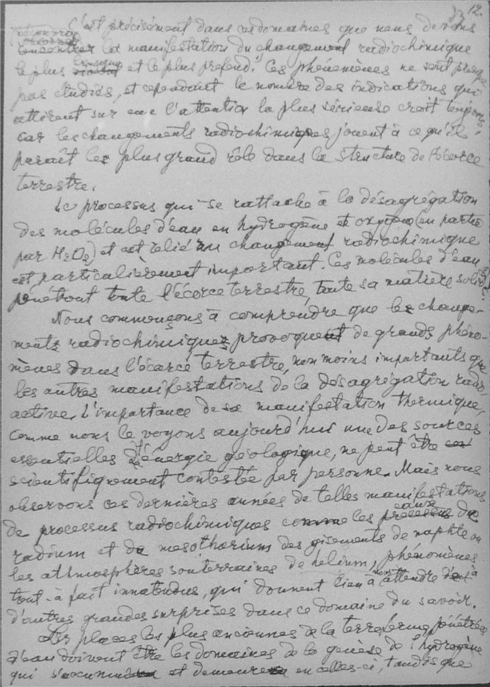 12.
C'est précisément dans ces domaines que nous devons
rencontrer la manifestation du changement radiochimique
le plus et le plus profond. Ces phénomènes ne sont presque
pas étudiés, et cependant le nombre des indications qui
attirent sur eux l'attention la plus sérieuse croît toujours
car les changements radiochimiques jouent à ce qu'il
paraît le plus grand rôle dans la structure de l'écorce
terrestre.
Le processus qui se rattache à la désagrégation
des molécules d'eau en hydrogène et oxygène (en partie
par H2O2) et est relié au changement radiochimique
est particulièrement important. Ces molécules d'eau
pénètront toute l'écorce terrestre, toute sa matière solide.
Nous commençons à comprendre que les change-
ments radiochimiques provoquent de grands phéno-
mènes dans l'écorce terrestre, non moins importants que
les autres manifestations de la désagrégation radio-
active. L'importance de sa manifestation thermique,
comme nous le voyons aujourd'hui une des sources
essentielles d'énergie géologique, ne peut être
scientifiquement contestée par personne. Mais nous
observons ces dernières années de telles manifestations
de processus radiochimiques comme les eaux du
radium et du mesothorium des gisements de naphte ou
les atmosphères souterraines de helium, phénomènes
tout-à-fait inattendus, qui donnent lieu à attendre
d'autres grandes surprises dans ce domaine du savoir.
Les places les plus anciennes de la terre ferme pénétrées
d'eau doivent être les domaines de la genèse de l'hydrogène
qui s'accumule et demeure en celles-ci, tandis que